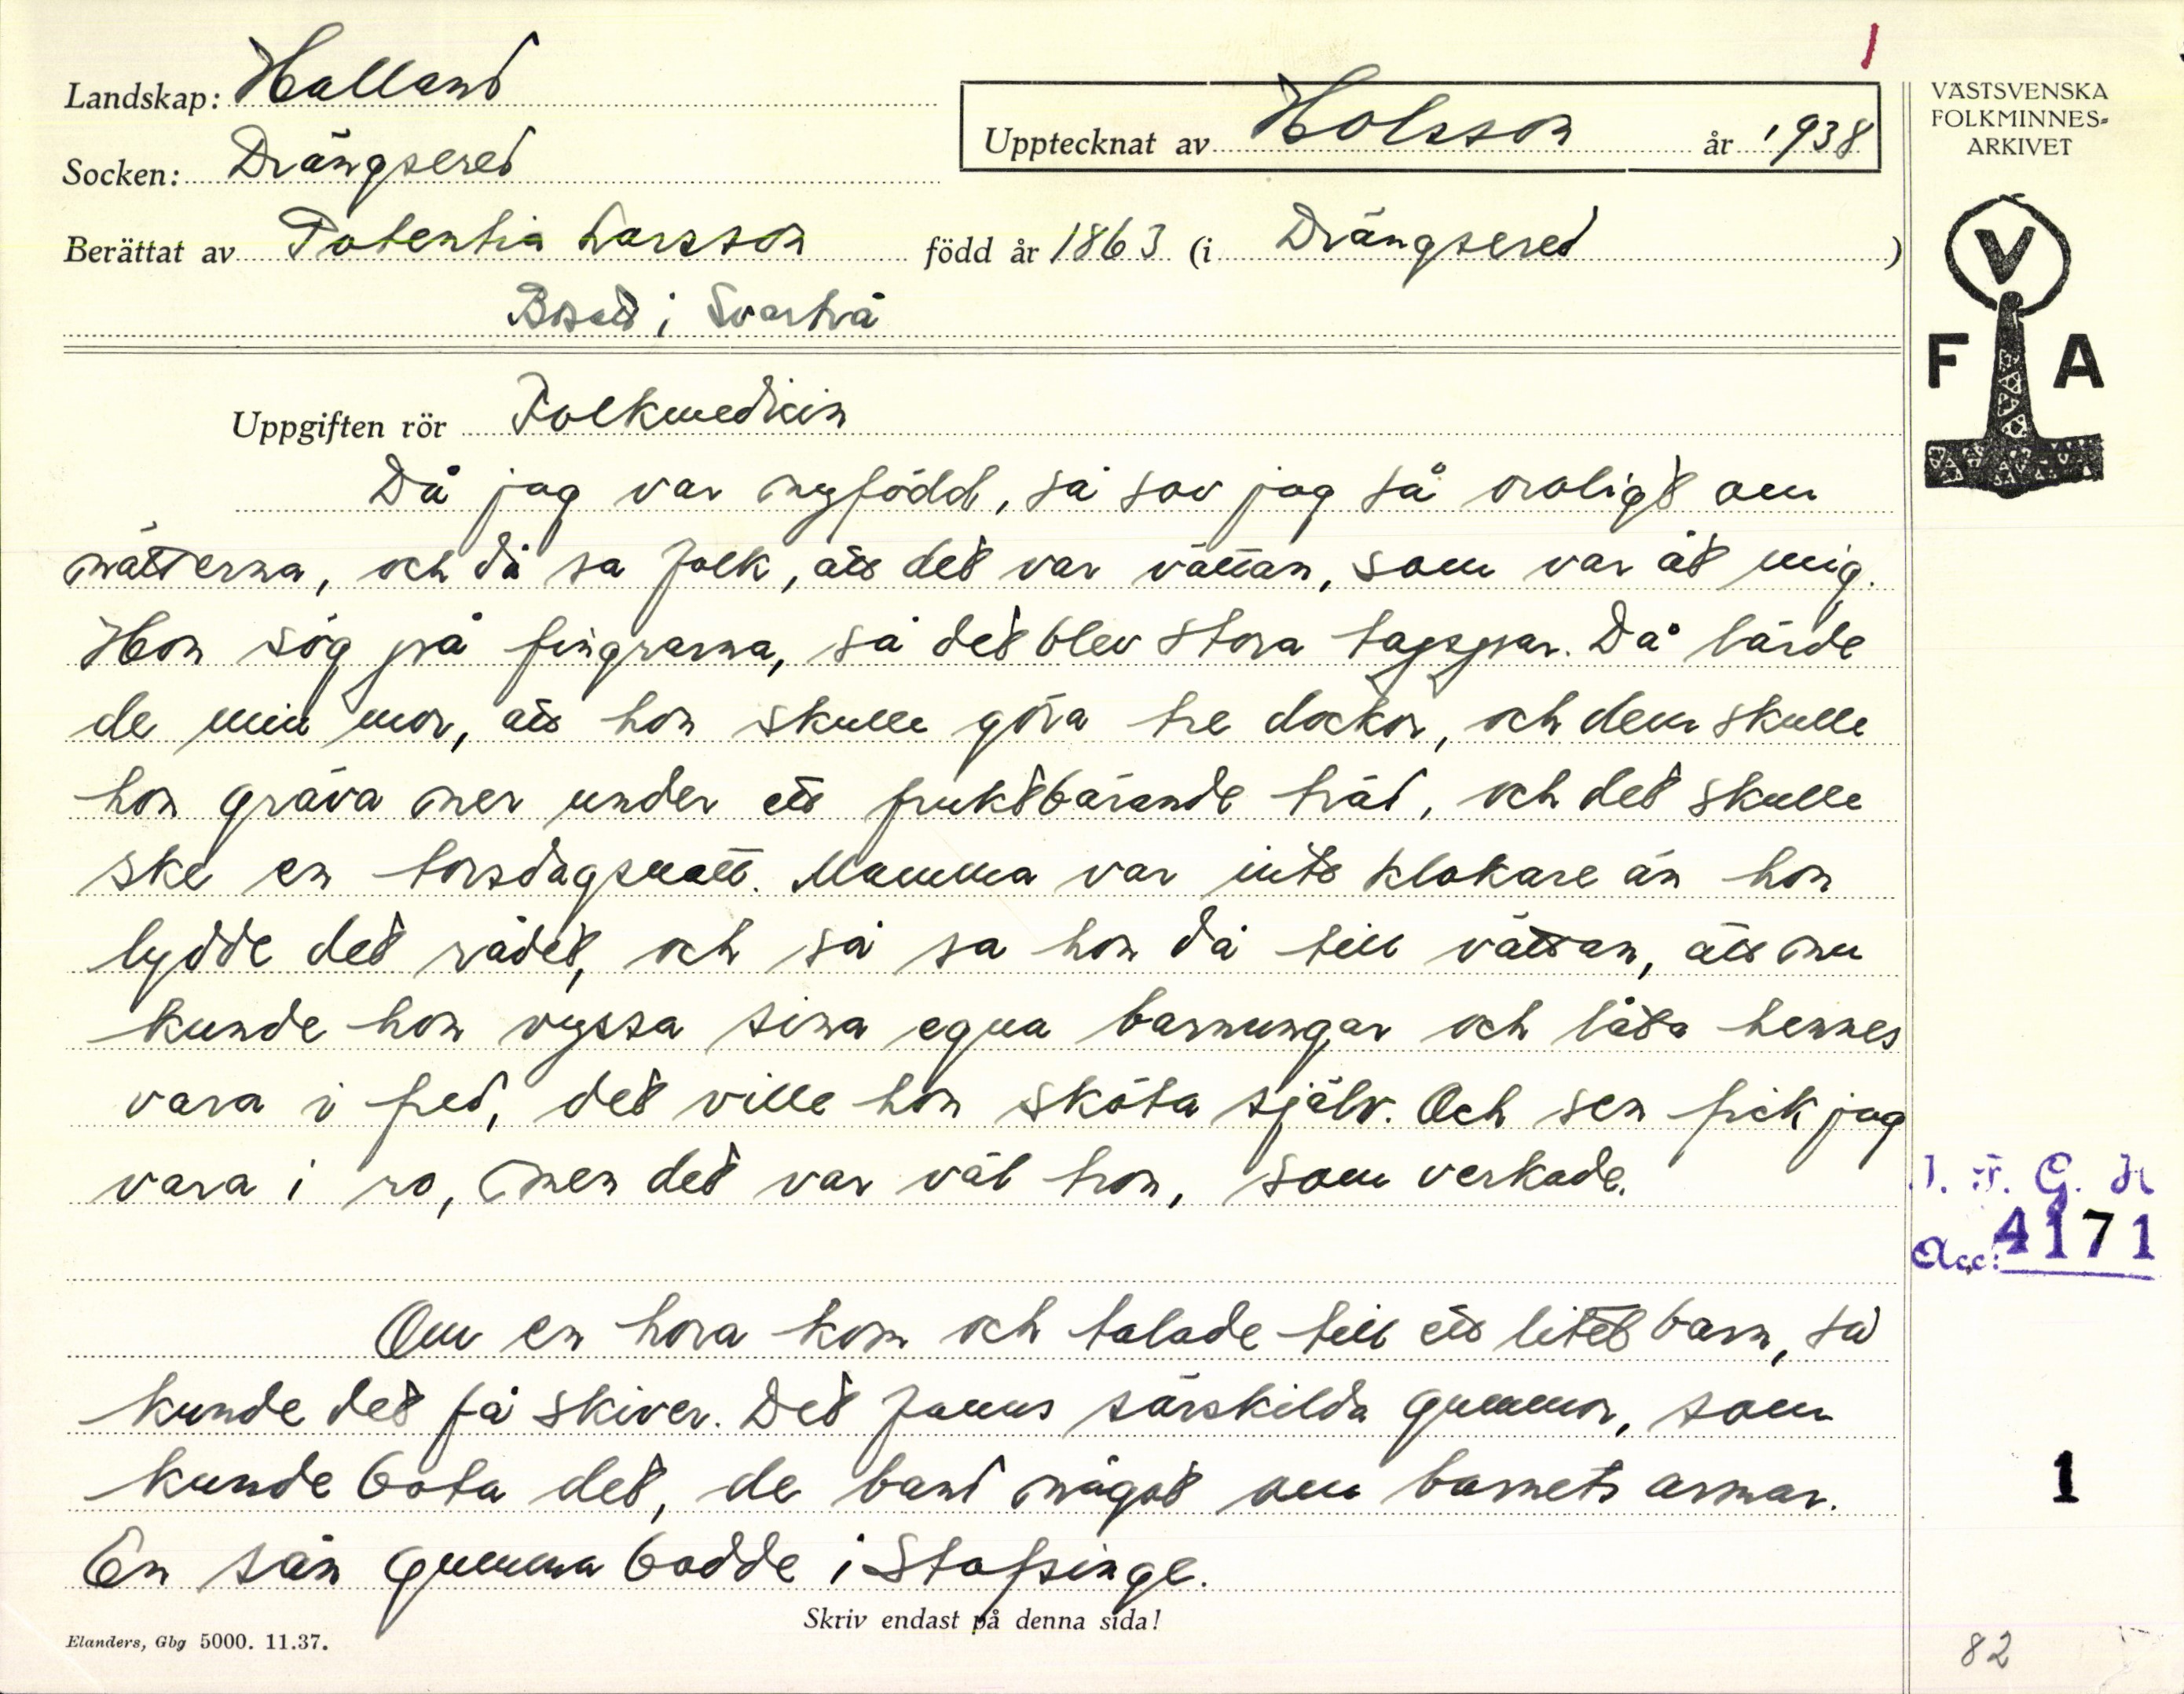 1
Landskap: Halland
Socken: Drängsered
Upptecknat av Holsson år 1938
Berättat av Potentia Larsson född år 1863 (i Drängsered)
Bosatt i Svartrå
VÄSTSVENSKA
FOLKMINNES-
ARKIVET
V
F A
Uppgiften rör Folkmedicin
Då jag var nyfödd, så sov jag så oroligt om
nätterna, och då sa folk, att det var vättan, som var åt mig.
Hon sög på fingrarna, så det blev stora tappar. Då lärde
de min mor, att hon skulle göra tre dockor, och dem skulle
hon gräva ner under ett fruktbärande träd, och det skulle
ske en torsdagsnatt. Mamma var inte klokare än hon
lydde det rådet, och så sa hon då till vättan, att nu
kunde hon vyssa sina egna barnungar och låta hennes
vara i fred, det ville hon sköta själv. Och sen fick jag
vara i ro, men det var väl tron, som verkade.
I. F. G. H
Acc: 4171
Om en hora kom och talade till ett litet barn, så
kunde det få skiver. Det fanns särskilda gummor, som
kunde bota det, de band något om barnets armar.
En sån gumma bodde i Stafsinge.
1
Skriv endast på denna sida!
Elanders, Gbg 5000. 11.37.
82